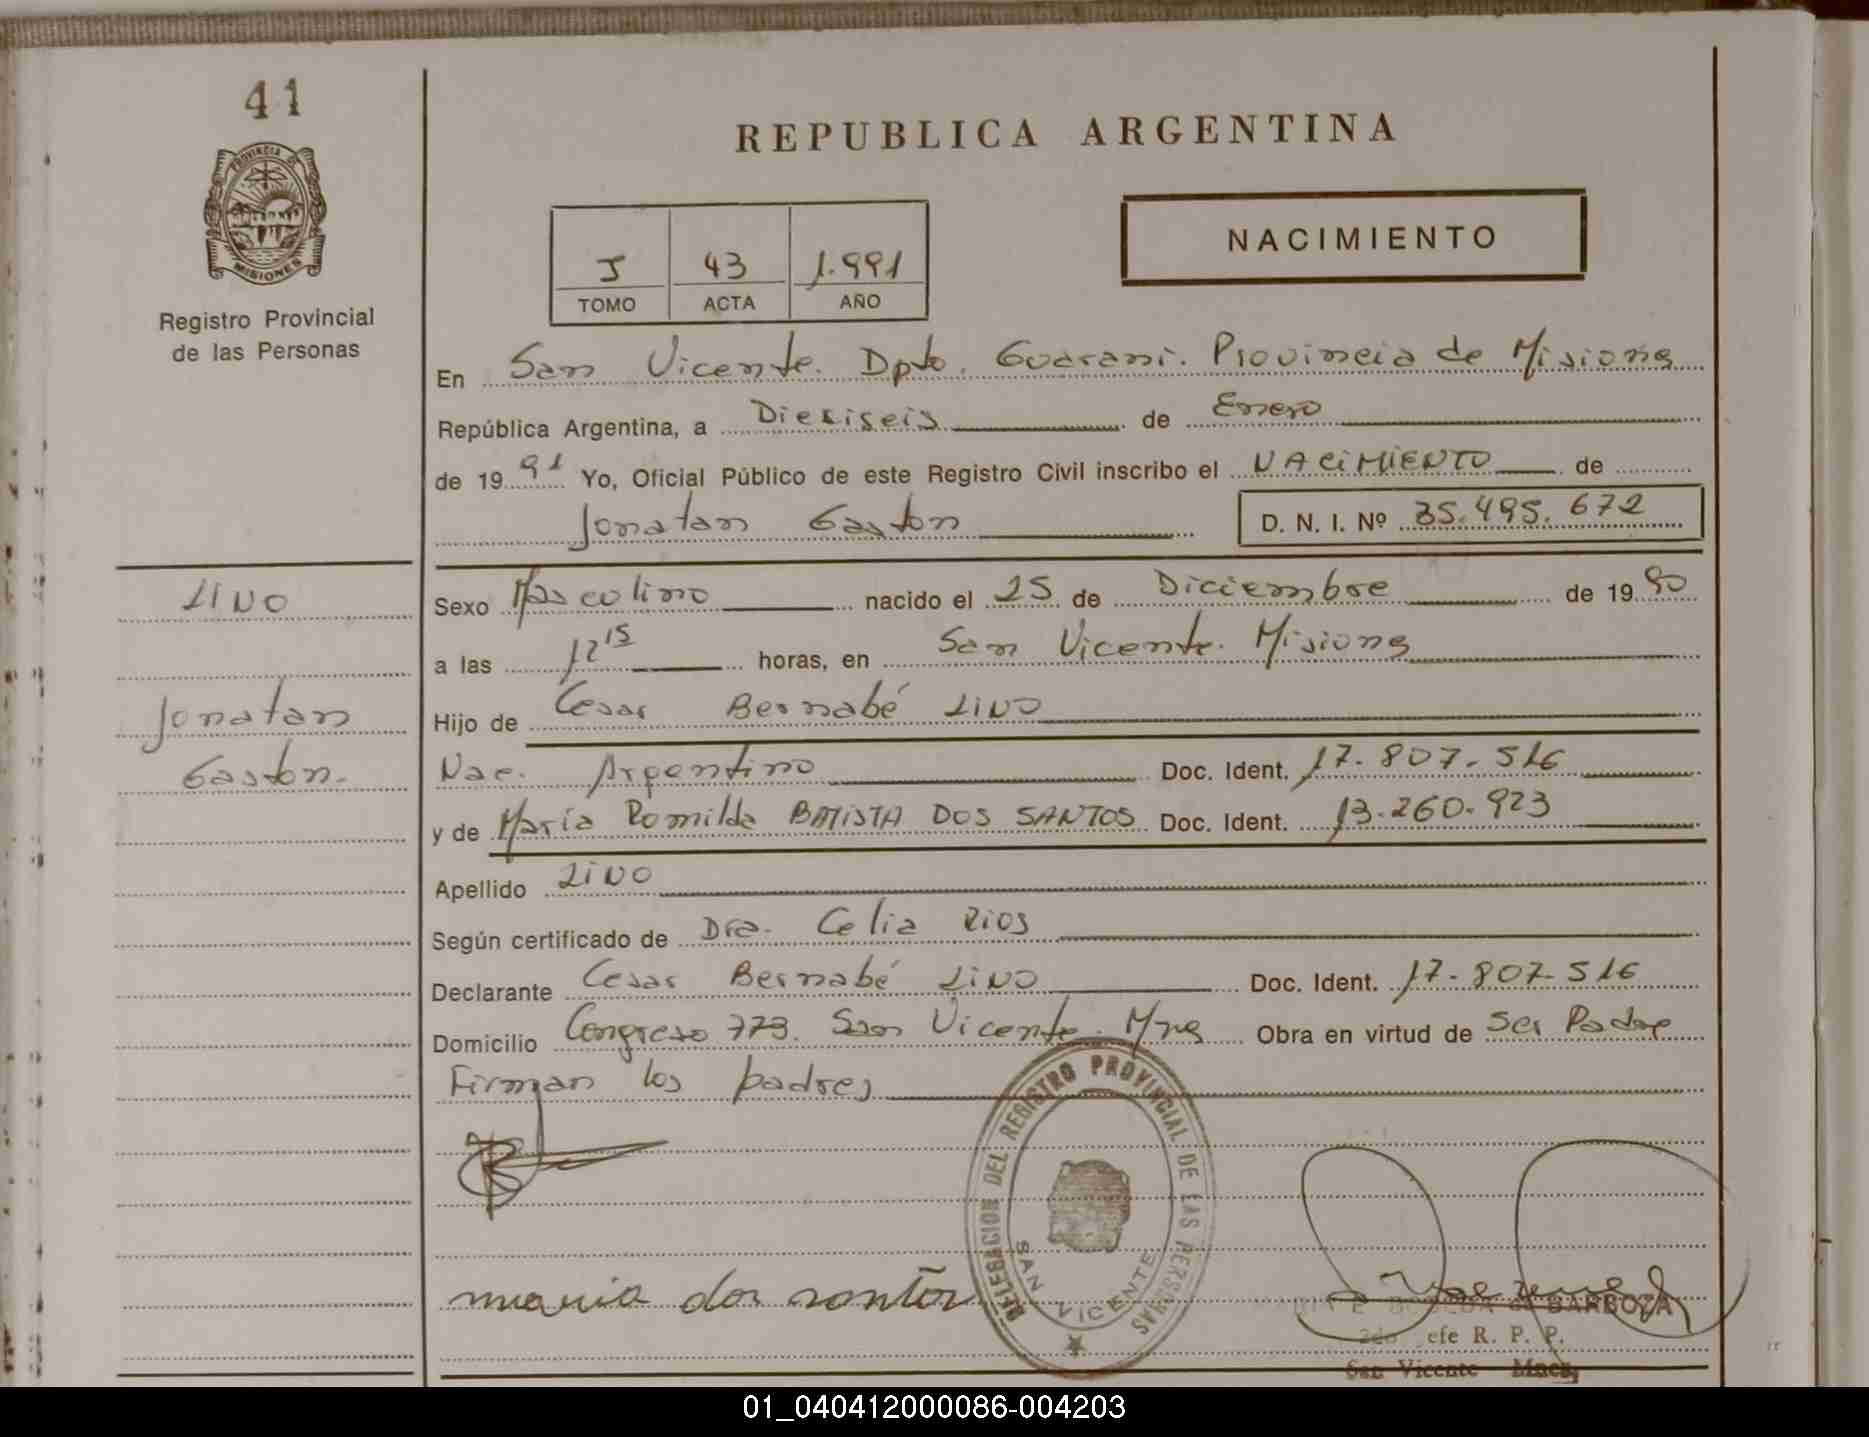 41
PROVINCIA DE
MISIONES
Registro Provincial
de las Personas
REPUBLICA ARGENTINA
J 43 1.991
TOMO ACTA AÑO
NACIMIENTO
En San Vicente. Dpto. Guarani. Provincia de Misiones
República Argentina, a Dieciseis de Enero
de 1991 Yo, Oficial Público de este Registro Civil inscribo el NACIMIENTO de
Jonatan Gaston D. N. I. Nº 35.495.672
LINO
Jonatan
Gaston.
Sexo Masculino nacido el 25 de Diciembre de 1990
a las 12 15 horas, en San Vicente. Misiones
Hijo de Cesar Bernabé LINO
Nac. Argentino Doc. Ident. 17.807.516
y de Maria Romilda BATISTA DOS SANTOS Doc. Ident. 13.260.923
Apellido LINO
Según certificado de Dra. Celia Rios
Declarante Cesar Bernabé LINO Doc. Ident. 17.807.516
Domicilio Congreso 773. San Vicente. Mnes Obra en virtud de Ser Padre
Firman los padres
DELEGACION DEL REGISTRO PROVINCIAL DE LAS PERSONAS
SAN VICENTE
maria dos santos
BARBOZA
2do efe R. P. P.
San Vicente Mnes,
01_040412000086-004203